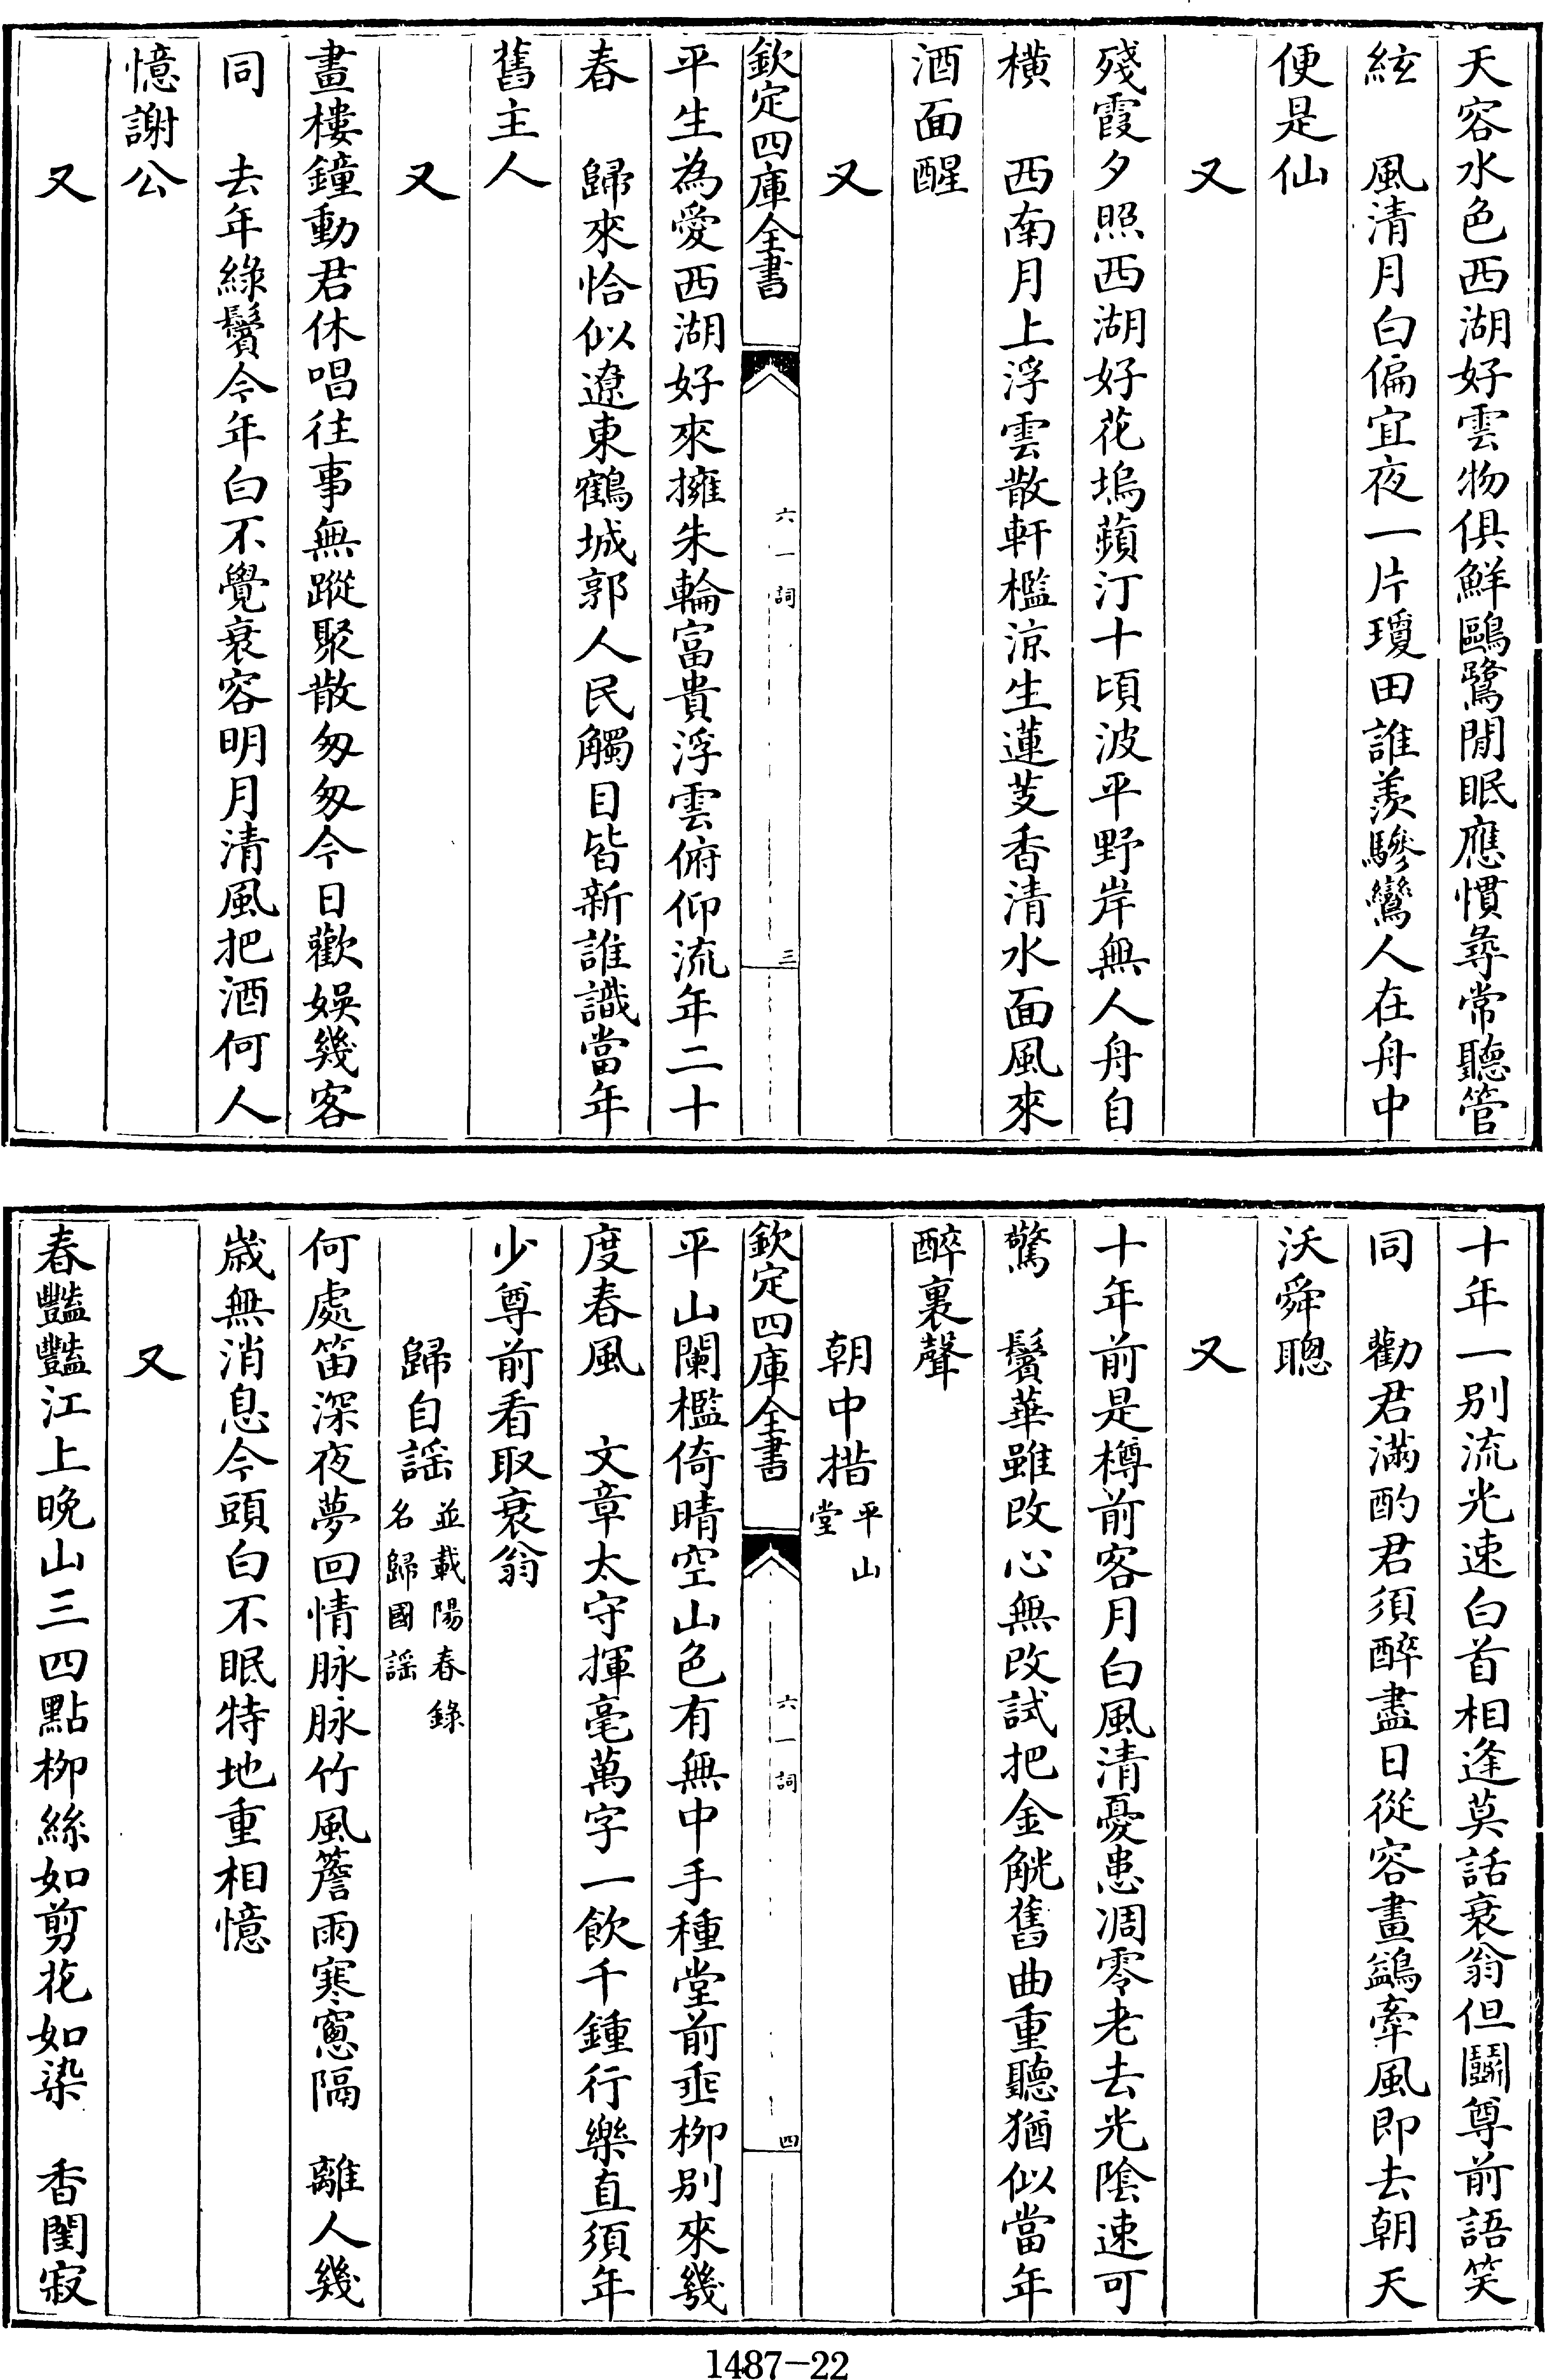 天容水色西湖好雲物俱鮮鷗鷺閒眠應慣尋常聽管
絃　風清月白偏宜夜一片瓊田誰羨驂鸞人在舟中
便是仙
又
殘霞夕照西湖好花塢蘋汀十頃波平野岸無人舟自
橫　西南月上浮雲散軒檻涼生蓮芰香清水面風來
酒面醒
又
欽定四庫全書
六一詞
三
平生為愛西湖好來擁朱輪富貴浮雲俯仰流年二十
春　歸來恰似遼東鶴城郭人民觸目皆新誰識當年
舊主人
又
畫樓鐘動君休唱往事無蹤聚散匆匆今日歡娛幾客
同　去年綠鬢今年白不覺衰容明月清風把酒何人
憶謝公
又
十年一別流光速白首相逢莫話衰翁但鬭尊前語笑
同　勸君滿酌君須醉盡日從容畫鷁牽風即去朝天
沃舜聰
又
十年前是樽前客月白風清憂患凋零老去光陰速可
驚　鬢華雖改心無改試把金觥舊曲重聽猶似當年
醉裏聲
朝中措平山堂
欽定四庫全書
六一詞
四
平山闌檻倚晴空山色有無中手種堂前垂柳別來幾
度春風　文章太守揮毫萬字一飲千鍾行樂直須年
少尊前看取衰翁
歸自謠並載陽春錄名歸國謠
何處笛深夜夢回情脉脉竹風簷雨寒窻隔　離人幾
歲無消息今頭白不眠特地重相憶
又
春豔豔江上晚山三四點柳絲如剪花如染　香閨寂
1487-22